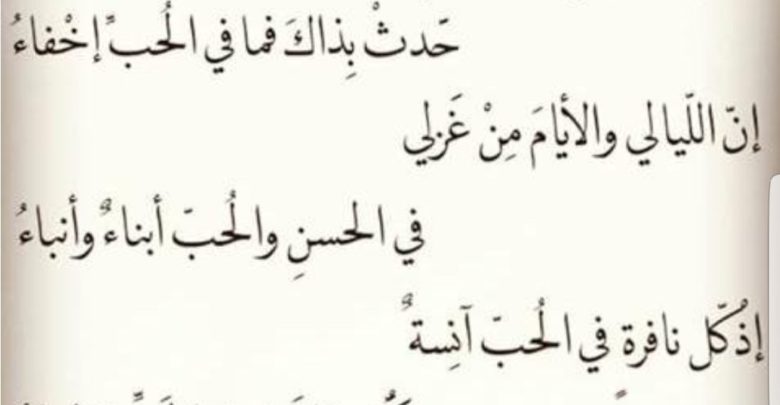 حَدثْ بِذاكَ فما في الُحب ًإخْفاءُ
إنّ اللّيالي والأيامَ مِنْ غَزلي
في الحسنِ والُحبّ أبناءٌ وأنباءُ
إذْ كلّ نافرة في الُحبّ آنِسةٌ